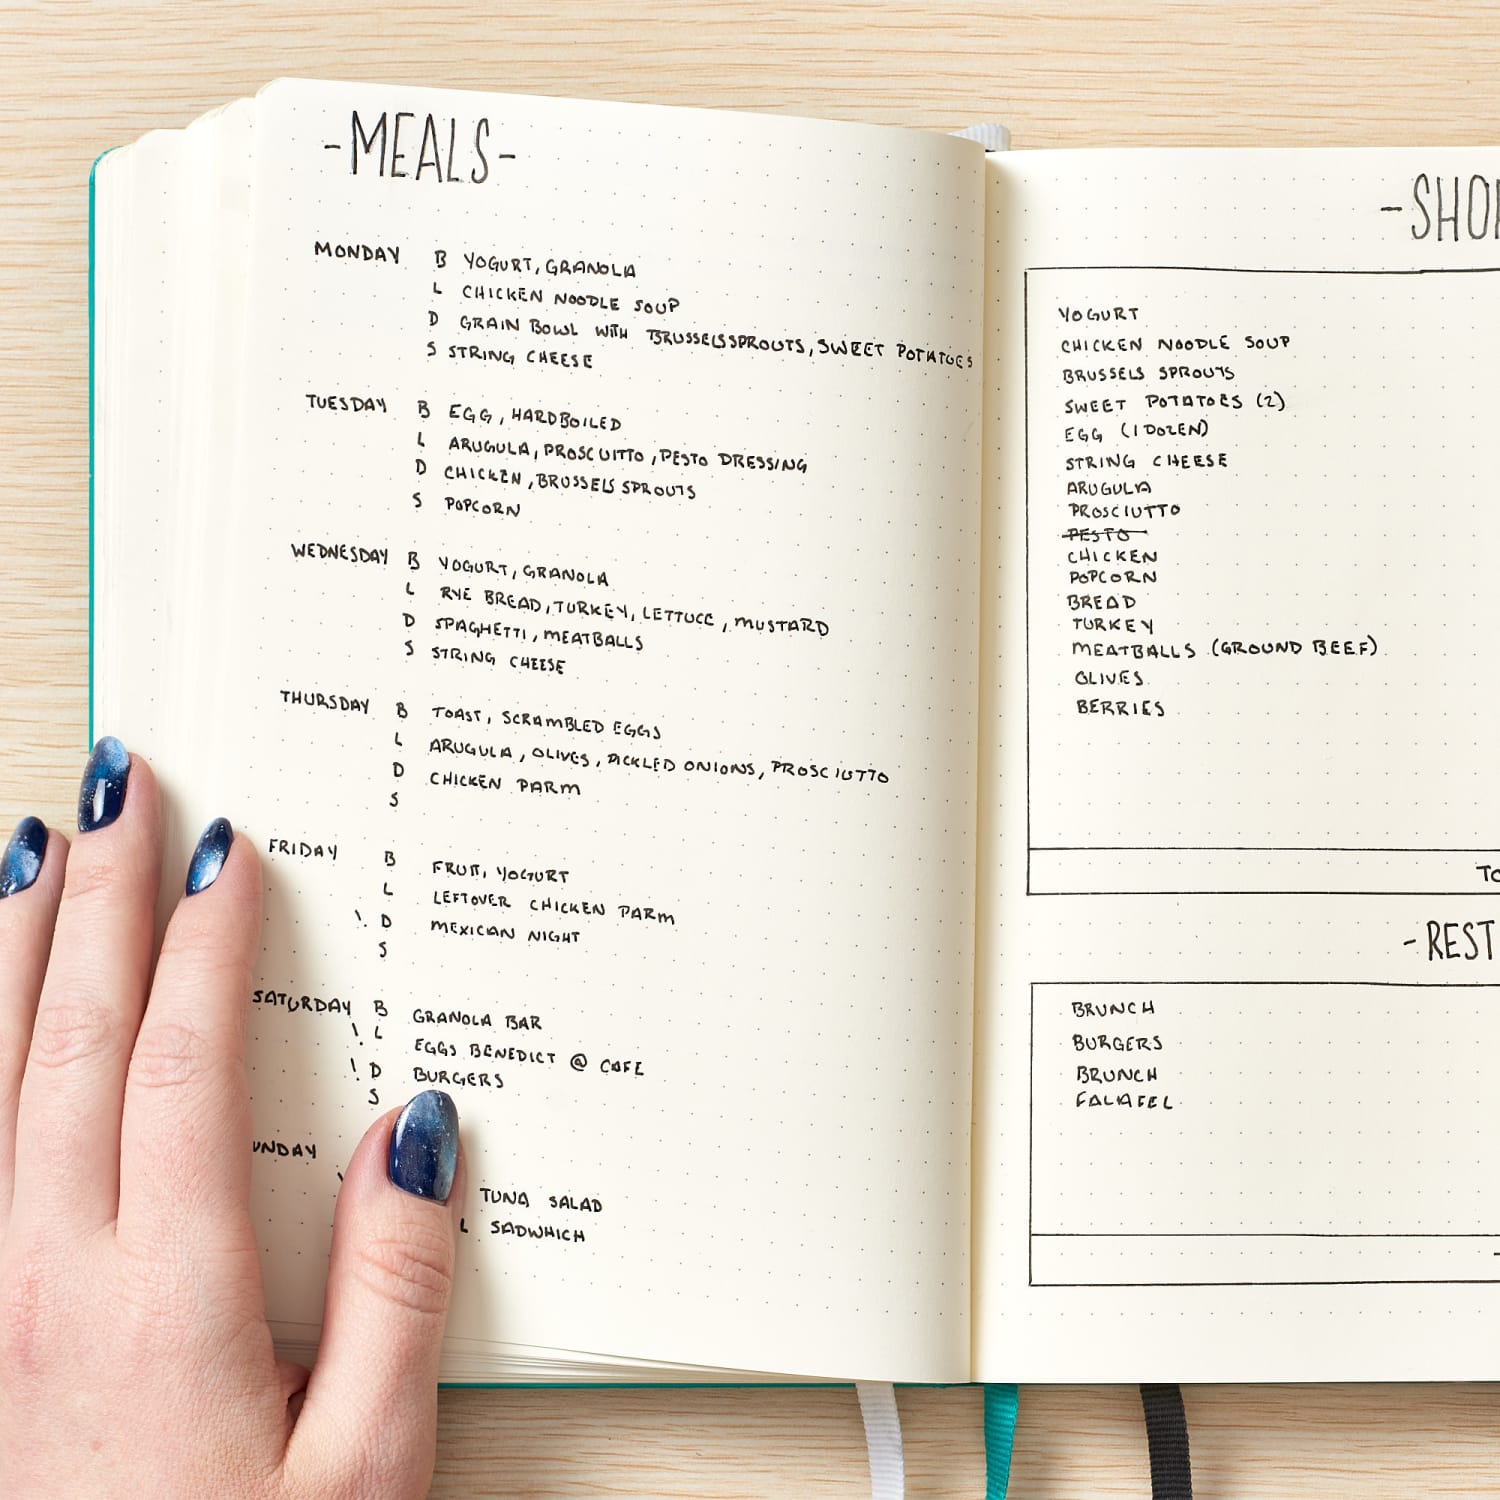 -MEALS-
MONDAY B YOGURT, GRANOLA
L CHICKEN NOODLE SOUP
D GRAIN BOWL WITH BRUSSELSSPROUTS, SWEET POTATOES
S STRING CHEESE
TUESDAY B EGG, HARDBOILED
L ARUGULA, PROSCUITTO, PESTO DRESSING
D CHICKEN, BRUSSELS SPROUTS
S POPCORN
WEDNESDAY B YOGURT, GRANOLA
L RYE BREAD, TURKEY, LETTUCE, MUSTARD
D SPAGHETTI, MEATBALLS
S STRING CHEESE
THURSDAY B TOAST, SCRAMBLED EGGS
L ARUGULA, OLIVES, PICKLED ONIONS, PROSCIUTTO
D CHICKEN PARM
S
FRIDAY B FRUIT, YOGURT
L LEFTOVER CHICKEN PARM
! D MEXICAN NIGHT
S
SATURDAY B GRANOLA BAR
! L EGGS BENEDICT @ CAFE
! D BURGERS
S
UNDAY
TUNA SALAD
L SADWHICH
-SHO
YOGURT
CHICKEN NOODLE SOUP
BRUSSELS SPROUTS
SWEET POTATOES (2)
EGG (1 DOZEN)
STRING CHEESE
ARUGULA
PROSCIUTTO
PESTO
CHICKEN
POPCORN
BREAD
TURKEY
MEATBALLS (GROUND BEEF)
OLIVES
BERRIES
TO
-REST
BRUNCH
BURGERS
BRUNCH
FALAFEL